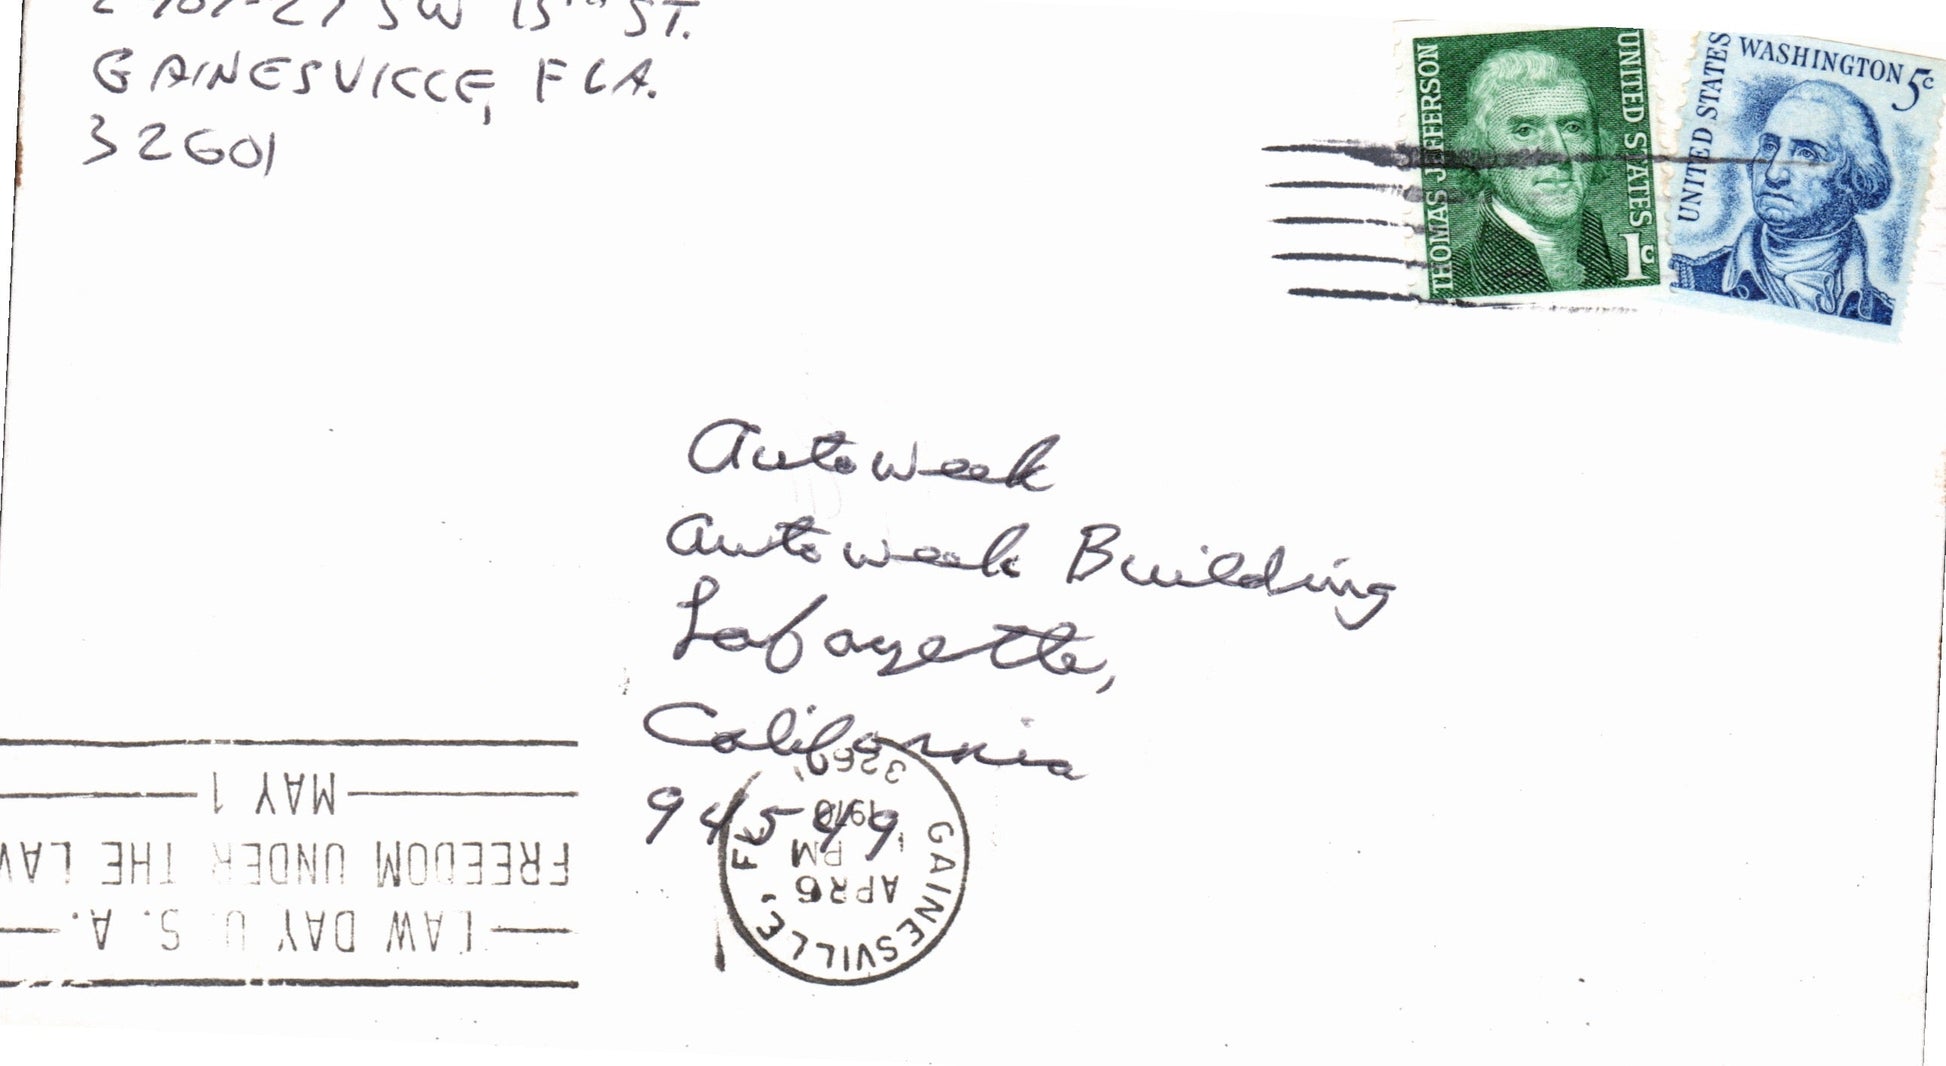 SW 13th ST.
GAINESVILLE, FLA.
32601
THOMAS JEFFERSON
UNITED STATES
1c
UNITED STATES
WASHINGTON 5c
Autoweek
Autoweek Building
Lafayette,
California
94549
GAINESVILLE, FL
APR 6
PM
1970
3260
LAW DAY U. S. A.
FREEDOM UNDER THE LAW
MAY 1